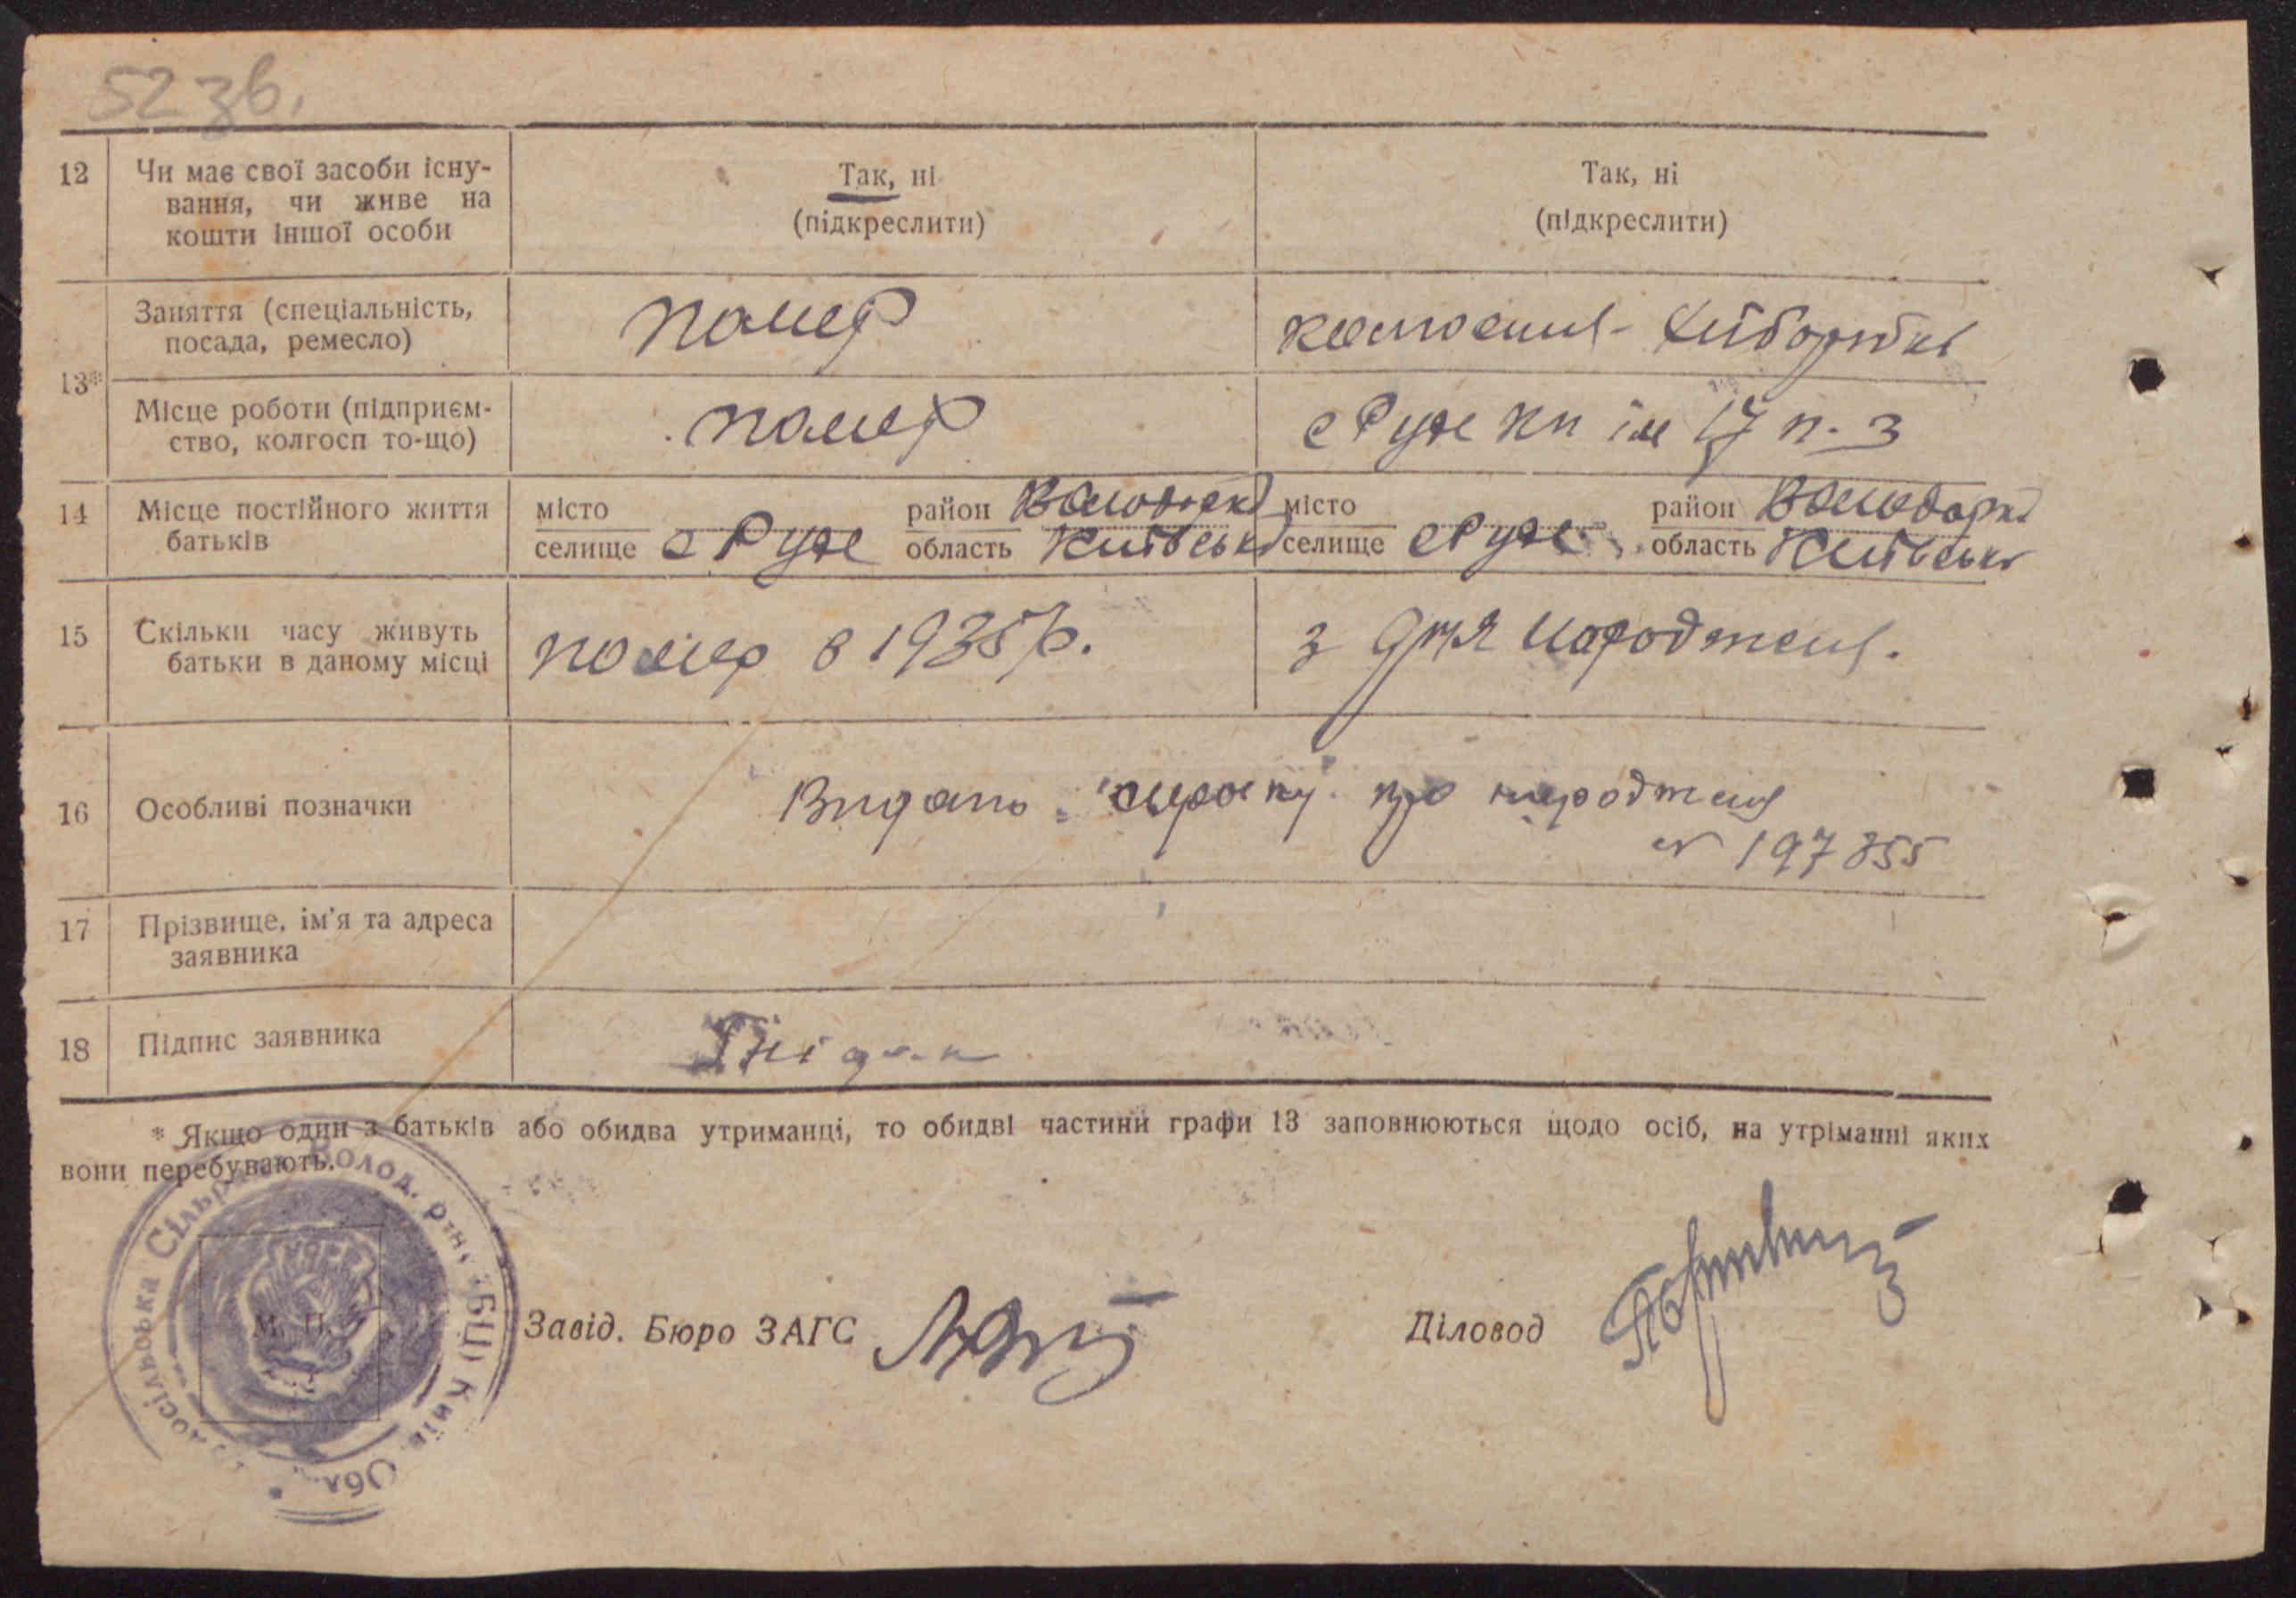 52 зв.
12 Чи має свої засоби існу-
вання, чи живе на
кошти іншої особи
Так, ні
(підкреслити)
Так, ні
(підкреслити)
13*
Заняття (спеціальність,
посада, ремесло)
помер
Місце роботи (підприєм-
ство, колгосп то-що)
помер
с Руде кп ім 17 п. з
14 Місце постійного життя
батьків
місто
селище с Руде
район
область Київськ
місто
селище с Руде
район Володарк
область Київськ
15 Скільки часу живуть
батьки в даному місці
помер в 1935 р.
з дня народжен.
16 Особливі позначки
Видано про народжен
№ 197355
17 Прізвище, ім'я та адреса
заявника
18 Підпис заявника
* Якщо один з батьків або обидва утриманці, то обидві частини графи 13 заповнюються щодо осіб, на утріманні яких
вони перебувають.
Сільрада Волод. р-ну, БЦ, Київ. Обл.
М. П.
Завід. Бюро ЗАГС
Діловод